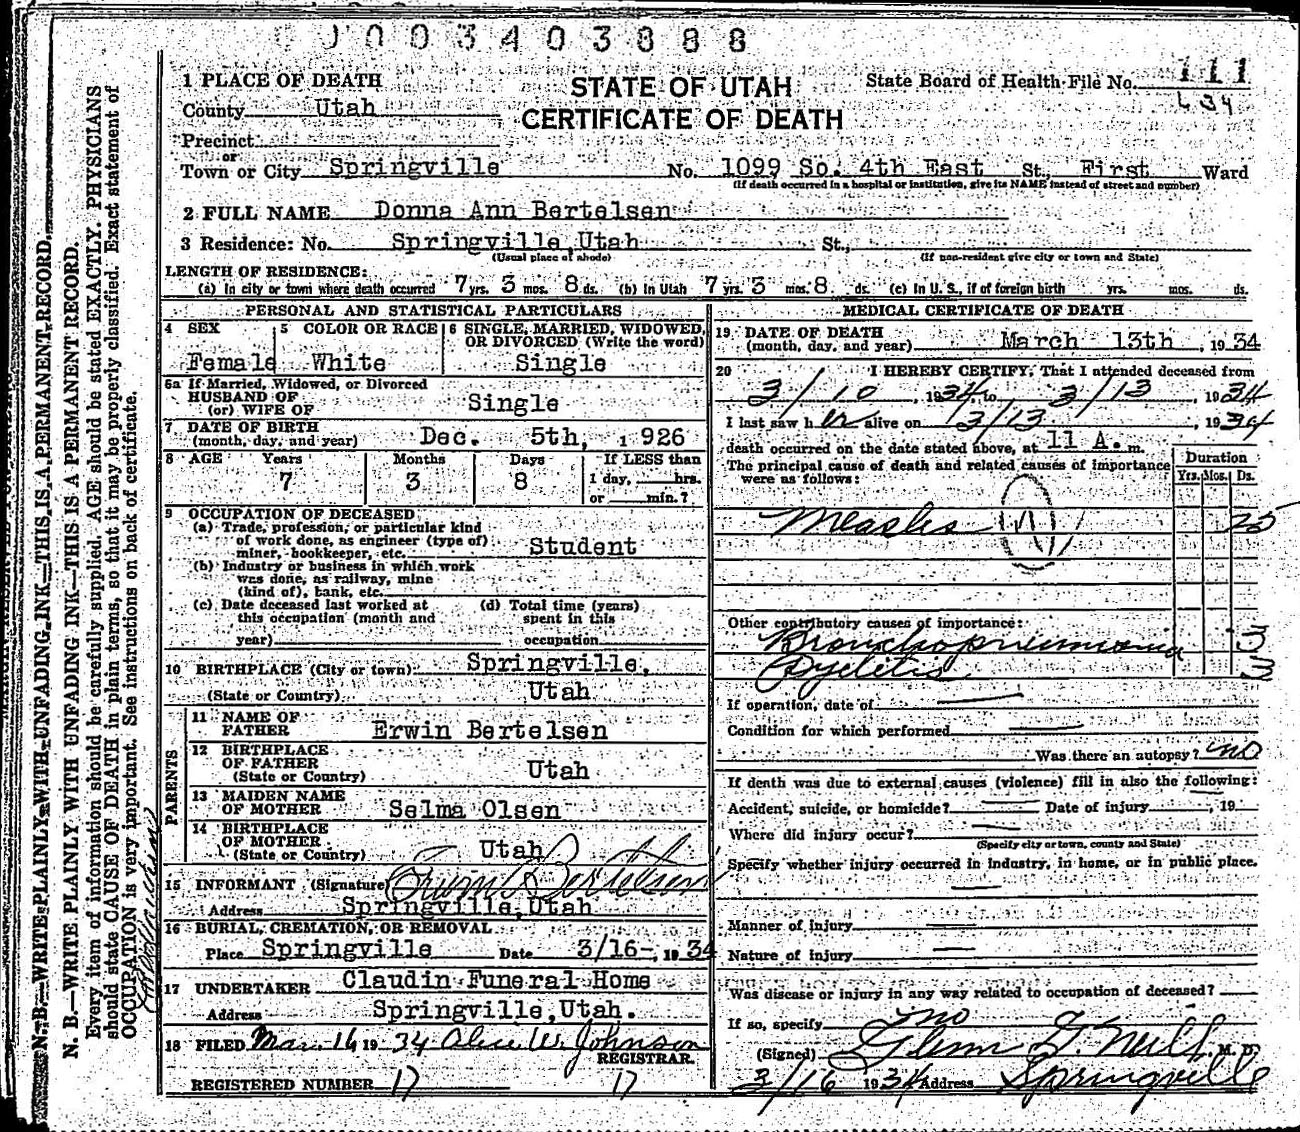 003403888
1 PLACE OF DEATH
STATE OF UTAH
CERTIFICATE OF DEATH
State Board of Health File No. 111
L 34
County Utah
Precinct
or
Town or City Springville No. 1099 So. 4th East St., First Ward
(If death occurred in a hospital or institution, give its NAME instead of street and number)
2 FULL NAME Donna Ann Bertelsen
3 Residence: No. Springville, Utah St.,
(Usual place of abode) (If non-resident give city or town and State)
LENGTH OF RESIDENCE:
(a) In city or town where death occurred 7 yrs. 3 mos. 8 ds. (b) In Utah 7 yrs. 3 mos. 8. ds. (c) In U. S., if of foreign birth yrs. mos. ds.
PERSONAL AND STATISTICAL PARTICULARS
4 SEX
Female
5 COLOR OR RACE
White
6 SINGLE, MARRIED, WIDOWED, OR DIVORCED (Write the word)
Single
6a If Married, Widowed, or Divorced
HUSBAND OF
(or) WIFE OF Single
7 DATE OF BIRTH
(month, day, and year) Dec. 5th, 1926
8 AGE Years Months Days If LESS than
7 3 8 1 day, hrs.
or min.?
9 OCCUPATION OF DECEASED
(a) Trade, profession, or particular kind
of work done, as engineer (type of)
miner, bookkeeper, etc. Student
(b) Industry or business in which work
was done, as railway, mine
(kind of), bank, etc.
(c) Date deceased last worked at
this occupation (month and
year)
(d) Total time (years)
spent in this
occupation
10 BIRTHPLACE (City or town) Springville,
(State or Country) Utah
PARENTS
11 NAME OF
FATHER Erwin Bertelsen
12 BIRTHPLACE
OF FATHER
(State or Country) Utah
13 MAIDEN NAME
OF MOTHER Selma Olsen
14 BIRTHPLACE
OF MOTHER
(State or Country) Utah
15 INFORMANT (Signature) Erwin Bertelsen
Address Springville, Utah
16 BURIAL, CREMATION, OR REMOVAL
Place Springville Date 3/16-, 1934
17 UNDERTAKER Claudin Funeral Home
Address Springville, Utah.
18 FILED Mar. 16 1934 Alice W. Johnson
REGISTRAR.
REGISTERED NUMBER 17 17
MEDICAL CERTIFICATE OF DEATH
19 DATE OF DEATH
(month, day, and year) March 13th, 1934
20 I HEREBY CERTIFY, That I attended deceased from
3/10, 1934, to 3/13, 1934
I last saw her alive on 3/13, 1934
death occurred on the date stated above, at 11 A. m.
The principal cause of death and related causes of importance
were as follows:
Duration
Yrs. Mos. Ds.
Measles 25
Other contributory causes of importance:
Bronchopneumonia 3
Pyelitis 3
If operation, date of
Condition for which performed
Was there an autopsy? no
If death was due to external causes (violence) fill in also the following:
Accident, suicide, or homicide? Date of injury , 19
Where did injury occur?
(Specify city or town, county and State)
Specify whether injury occurred in industry, in home, or in public place.
Manner of injury
Nature of injury
Was disease or injury in any way related to occupation of deceased?
If so, specify no
(Signed) Glenn G. Neill M. D.
3/16 1934 Address Springville
N. B.—WRITE PLAINLY WITH UNFADING INK—THIS IS A PERMANENT RECORD.
N. B.—WRITE PLAINLY WITH UNFADING INK—THIS IS A PERMANENT RECORD.
Every item of information should be carefully supplied. AGE should be stated EXACTLY. PHYSICIANS
should state CAUSE OF DEATH in plain terms, so that it may be properly classified. Exact statement of
OCCUPATION is very important. See instructions on back of certificate.